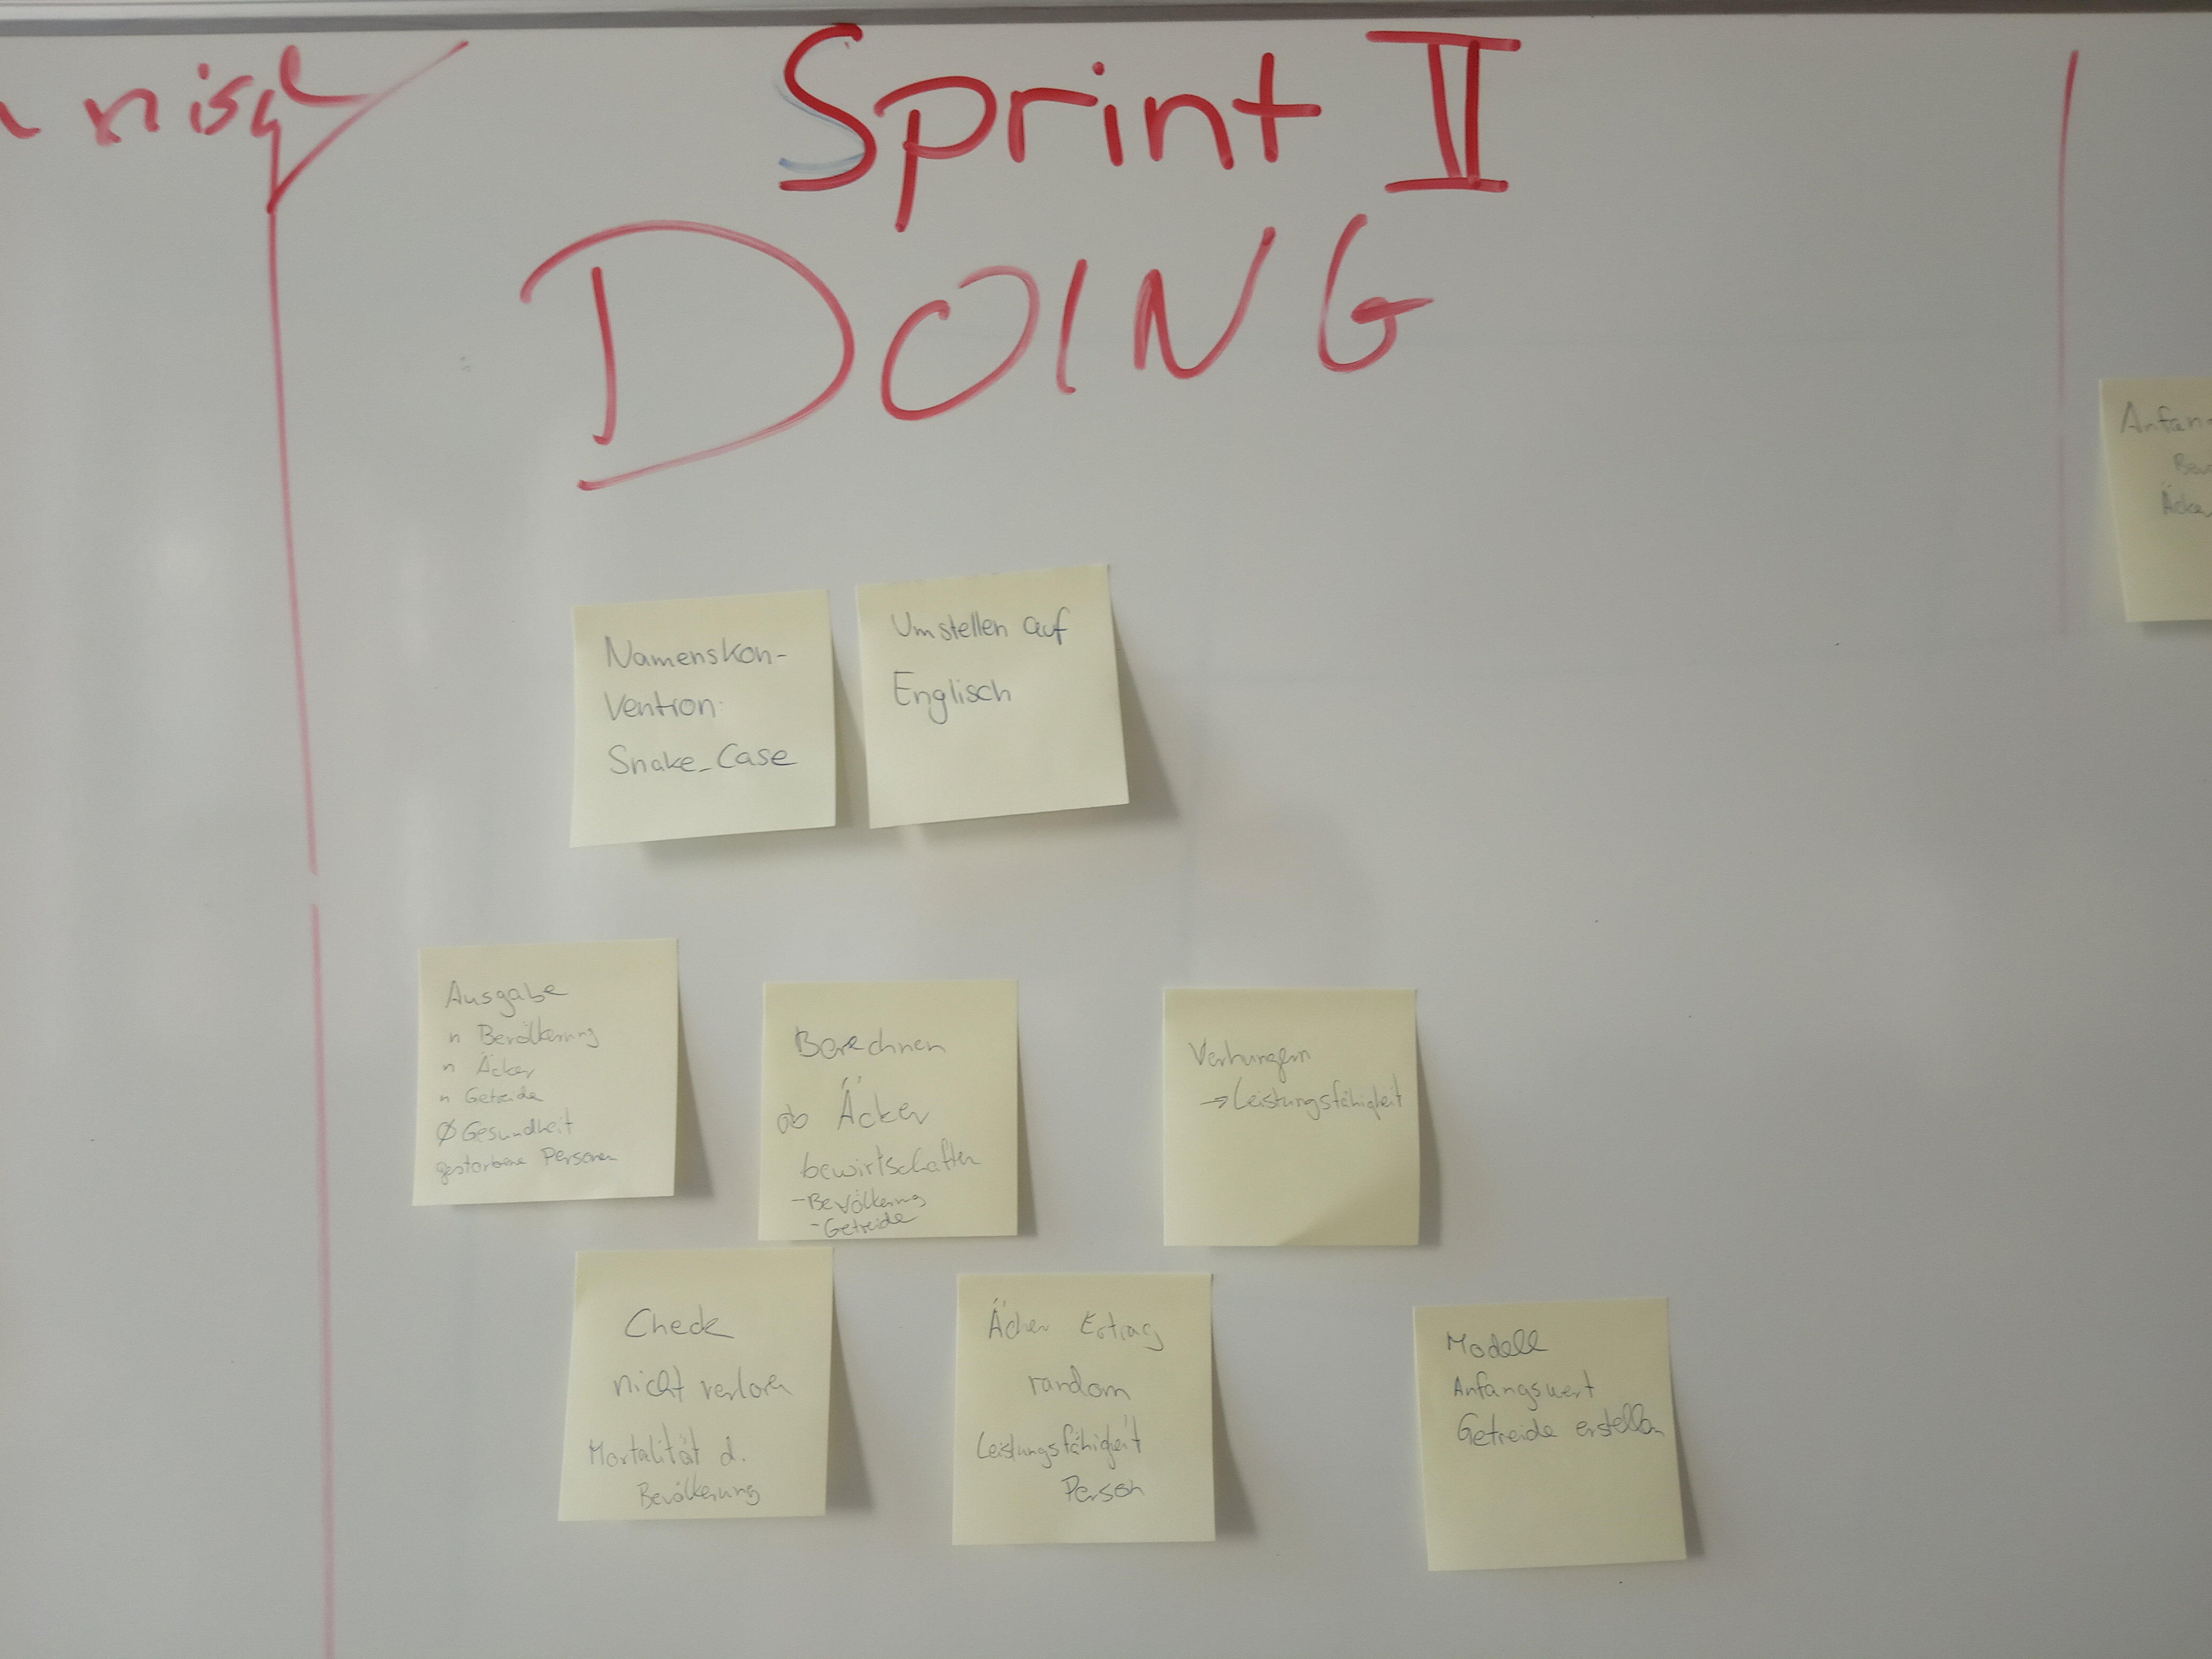 Sprint II
DOING
Namenskon-
vention:
Snake_Case
Umstellen auf
Englisch
Ausgabe
n Bevölkerung
n Äcker
n Getreide
Ø Gesundheit
gestorbene Personen
Berechnen
ob Äcker
bewirtschaften
-Bevölkerung
-Getreide
Verhungern
→ Leistungsfähigkeit
Check
nicht verloren
Mortalität d.
Bevölkerung
Äcker Ertrag
random
Leistungsfähigkeit
Person
Modell
Anfangswert
Getreide erstellen
Anfan
Äcker